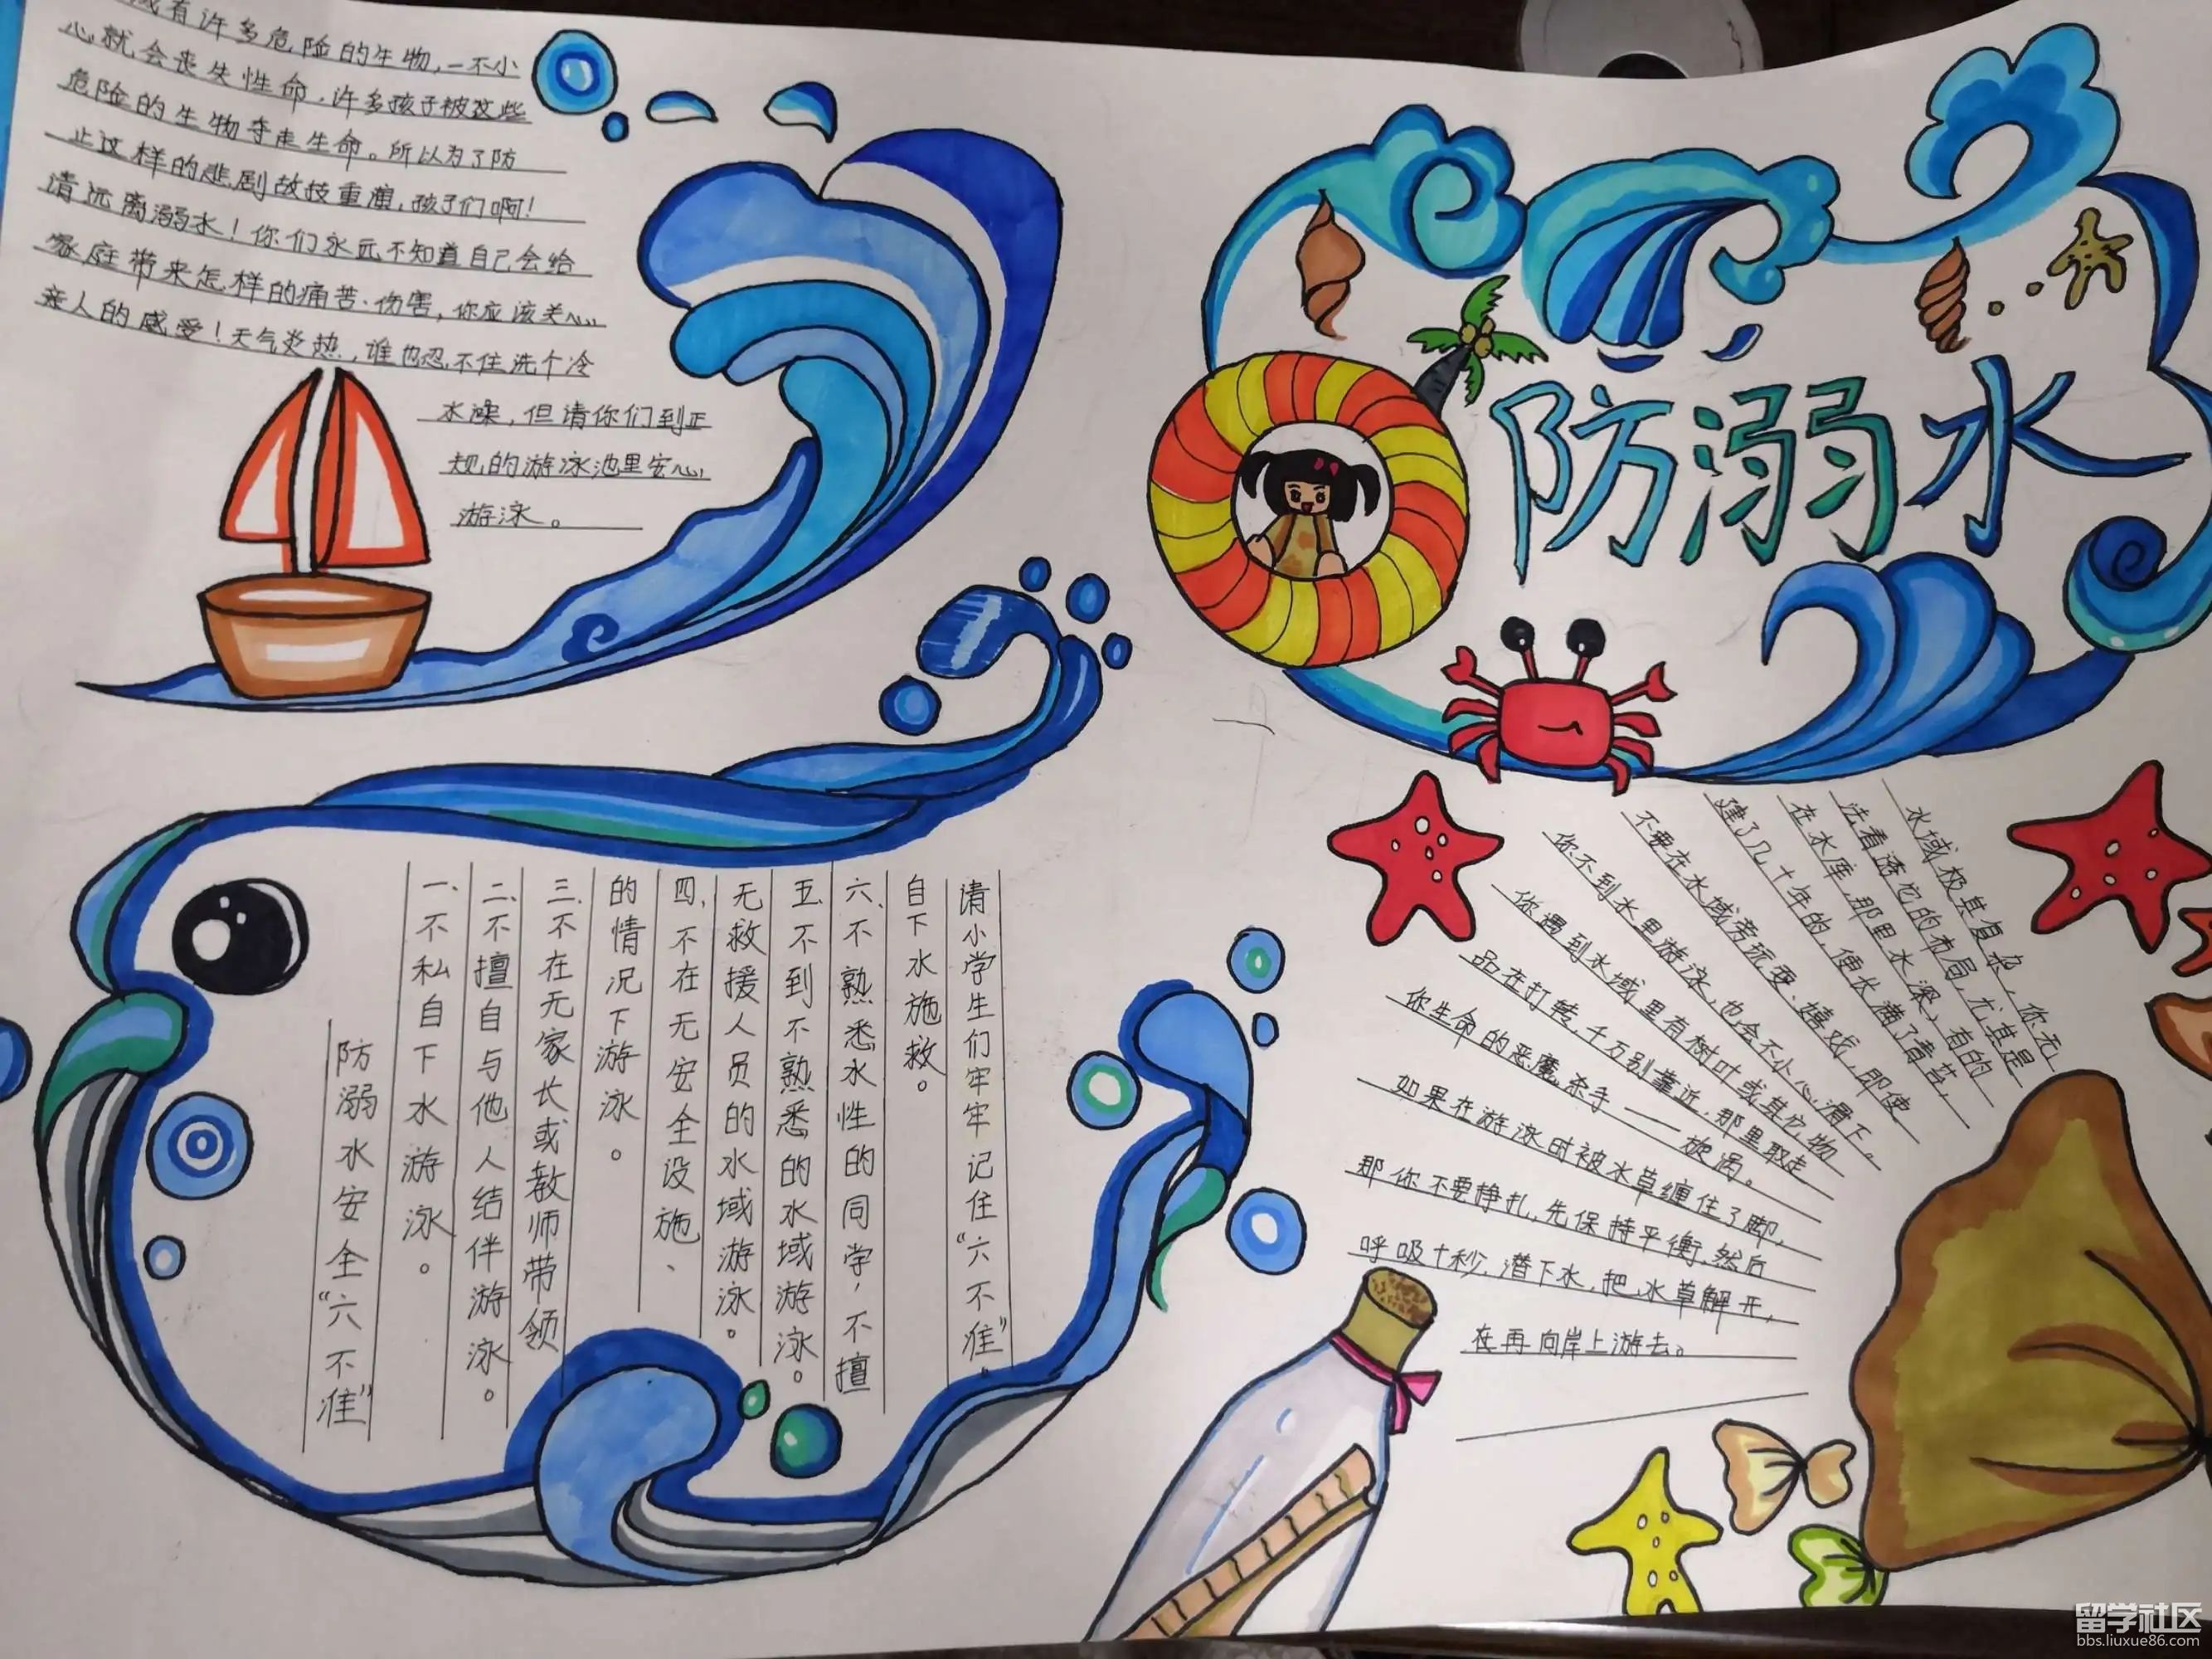 域有许多危险的生物，一不小
心就会丧失性命，许多孩子被这些
危险的生物夺走生命。所以为了防
止这样的悲剧故技重演，孩子们啊！
请远离溺水！你们永远不知道自己会给
家庭带来怎样的痛苦、伤害，你应该关心
亲人的感受！天气炎热，谁也忍不住洗个冷
水澡，但请你们到正
规的游泳池里安心
游泳。
防溺水
防溺水安全“六不准”
一、不私自下水游泳。
二、不擅自与他人结伴游泳。
三、不在无家长或教师带领
的情况下游泳。
四、不在无安全设施、
无救援人员的水域游泳。
五、不到不熟悉的水域游泳。
六、不熟悉水性的同学，不擅
自下水施救。
请小学生们牢牢记住“六不准”。
水域极其复杂，你无
法看透它的布局，尤其是
在水库，那里水深，有的
建了几十年的，便长满了青苔，
不要在水域旁玩耍、嬉戏，即使
你不到水里游泳，也会不小心滑下。
你遇到水域里有树叶或其它物
品在打转，千万别靠近，那里取走
你生命的恶魔杀手——旋涡。
如果在游泳时被水草缠住了脚，
那你不要挣扎，先保持平衡，然后
呼吸十秒，潜下水，把水草解开，
在再向岸上游去。
留学社区
bbs.liuxue86.com